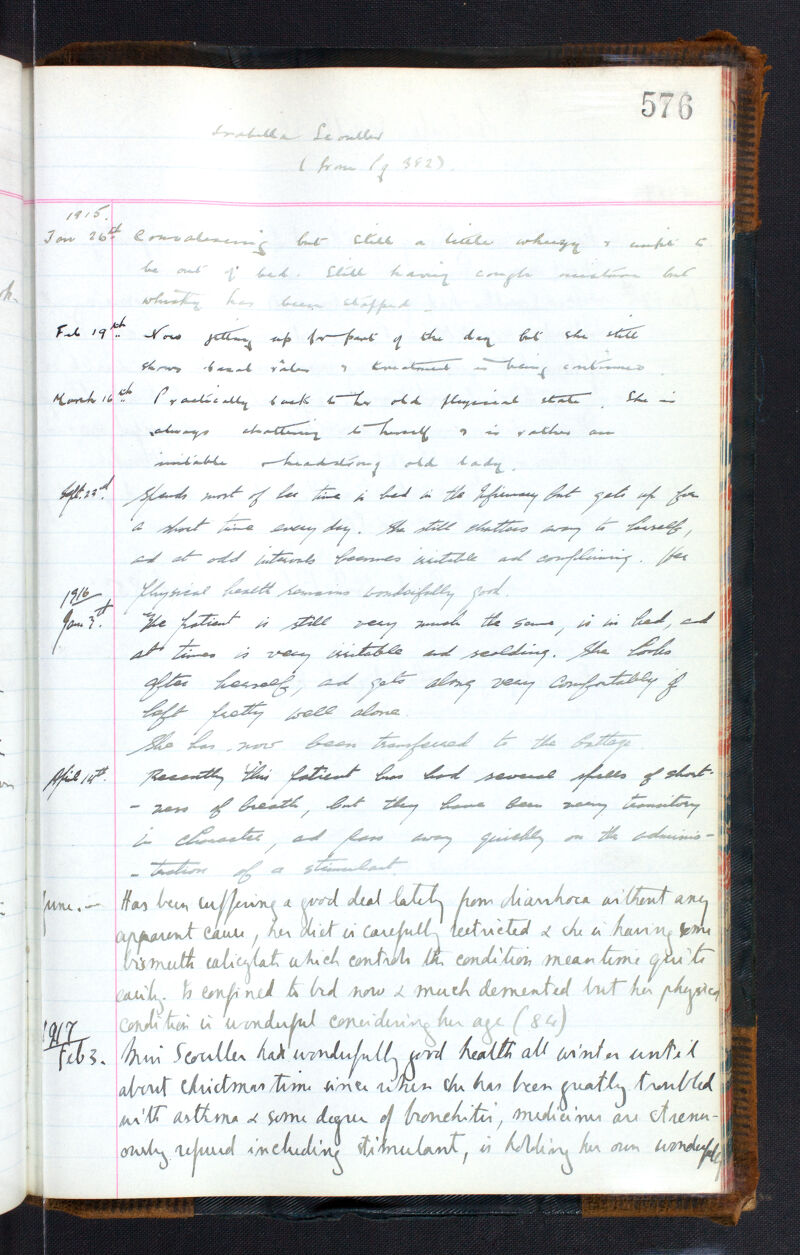 576
Isabella Scouller
(from Pg 382).
1915.
Jan 26th. Convalescing but still a little wheezy & unfit to
be out of bed. Still having cough mixture but
whisky has been stopped
Feb 19th. Now getting up for part of the day but she still
shows basal râles & treatment is being continued.
March 16th Practically back to her old physical state. She is
always chattering to herself & is rather an
irritable & headstrong old lady.
Sept. 23d. Spends most of her time in bed in the Infirmary but gets up for
a short time every day. She still chatters away to herself,
ad at odd intervals becomes irritable ad complaining. Her
physical health remains wonderfully good
1916
Jan 3d. The patient is still very much the same, is in bed, ad
at times is very irritable ad scolding. She looks
after herself, ad gets along very comfortably if
left pretty well alone.
She has now been transferred to the Cottage
April 14th. Recently this patient has had several spells of short-
-ness of breath, but they have been very transitory
in character, ad pass away quickly on the adminis-
-tration of a stimulant.
June. — Has been suffering a good deal lately from diarrhoea without any
apparent cause, her diet is carefully restricted & she is having some
bismuth salicylate which controls the condition meantime quite
easily. Is confined to bed now & much demented but her physical
condition is wonderful considering her age (84)
1917
Feb 3. Miss Scouller had wonderfully good health all winter until
about Christmas time since when she has been greatly troubled
with asthma & some degree of bronchitis, medicines are strenu-
ously refused including stimulant, is holding her own wonderfully